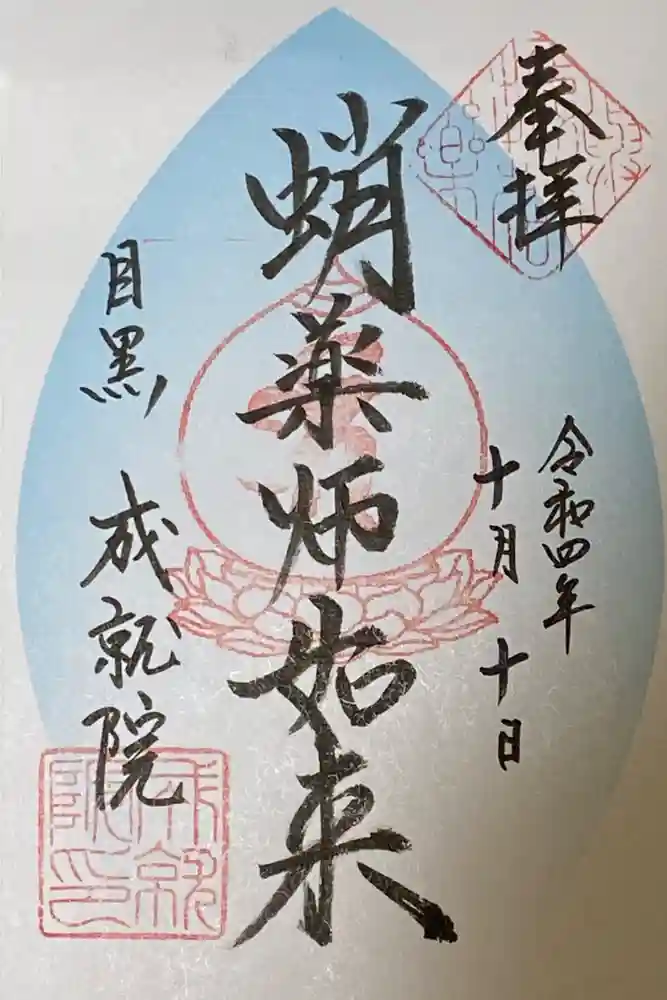 奉拝
令和四年
十月十日
蛸薬師如来
目黒 成就院
成就院印